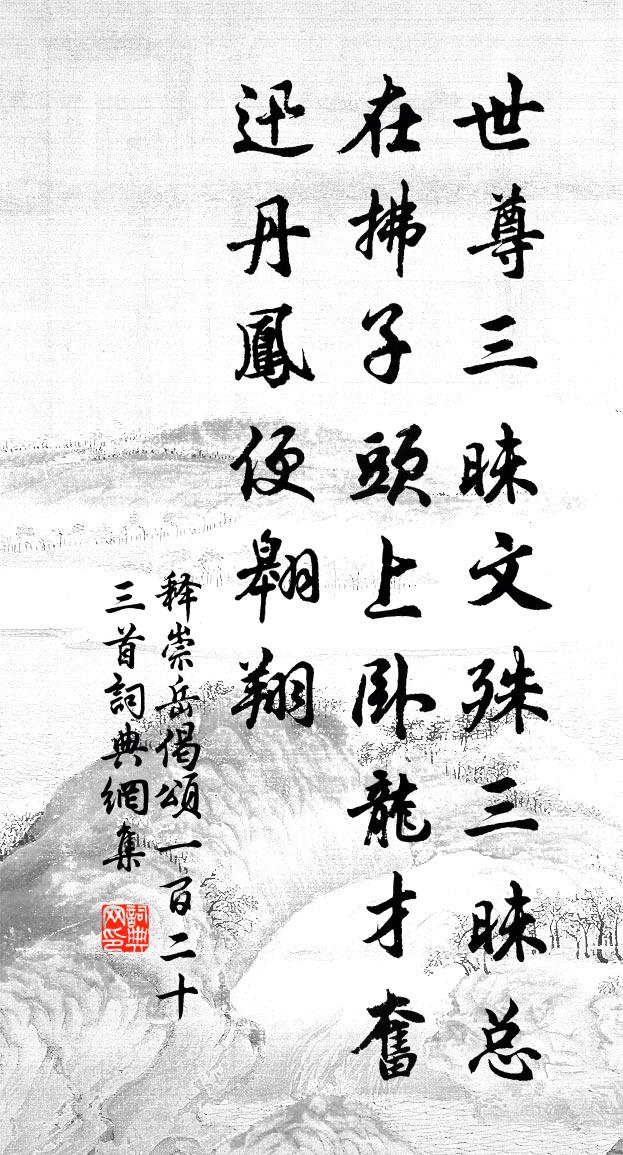 世尊三昧文殊三昧总
在拂子頭上卧龍才奮
迅丹鳳便翱翔
释崇岳偈頌一百二十
三首詞典網集
詞典
网印